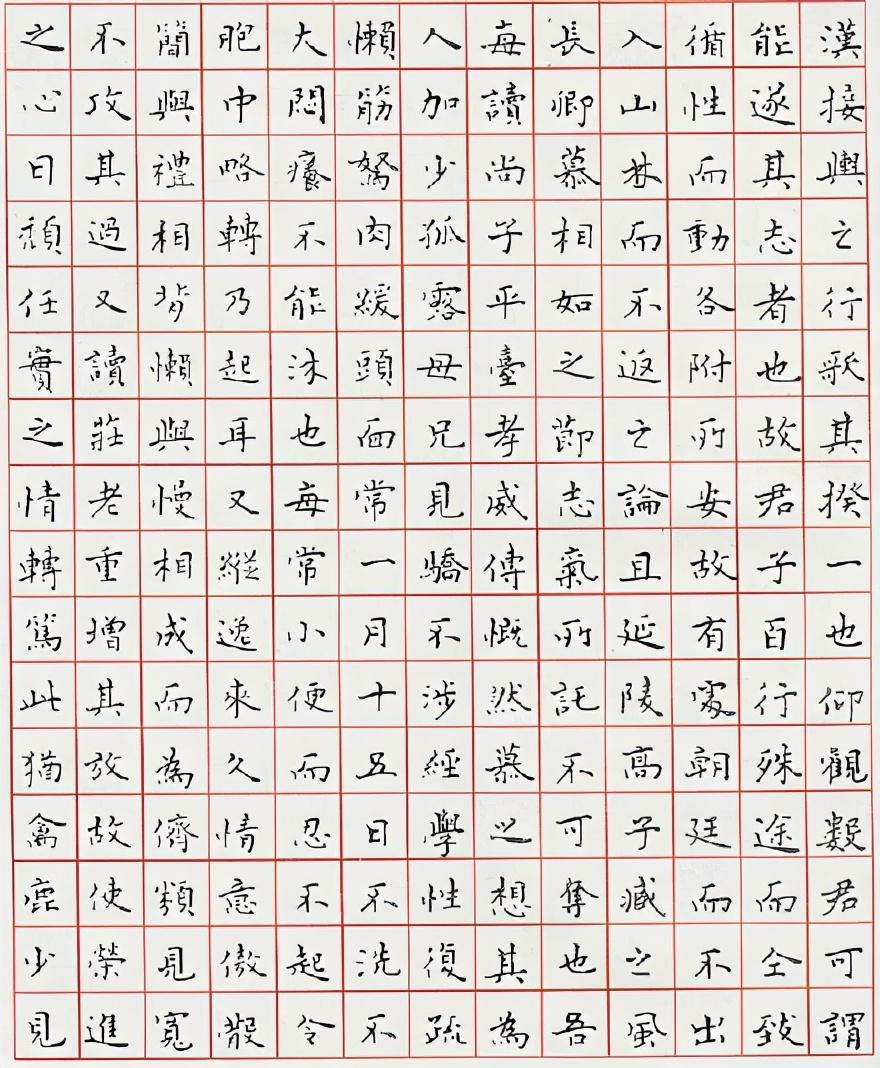 漢接輿之行歌其揆一也仰觀數君可謂
能遂其志者也故君子百行殊途而仝致
循性而動各附所安故有處朝廷而不出
入山林而不返之論且延陵高子臧之風
長卿慕相如之節志氣所託不可奪也吾
每讀尚子平臺孝威傳慨然慕之想其為
人加少孤露母兄見驕不涉經學性復疏
懶筋駑肉緩頭面常一月十五日不洗不
大悶癢不能沐也每常小便而忍不起令
胞中略轉乃起耳又縱逸來久情意傲散
簡與禮相背懶與慢相成而為儕類見寬
不攻其過又讀莊老重增其放故使榮進
之心日頹任實之情轉篤此猶禽鹿少見